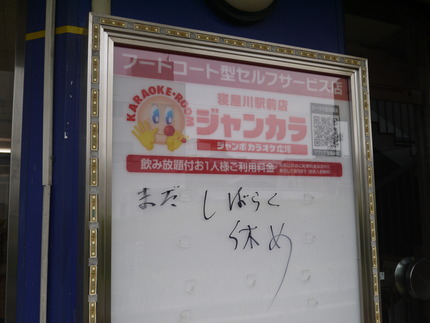 フードコート型セルフサービス店
KARAOKE・ROOM
寝屋川駅前店
ジャンカラ
ジャンボカラオケ広場
飲み放題付お1人様ご利用料金
まだ しばらく
休め